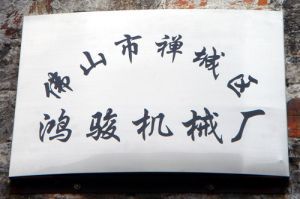 佛山市禅城区
鸿骏机械厂